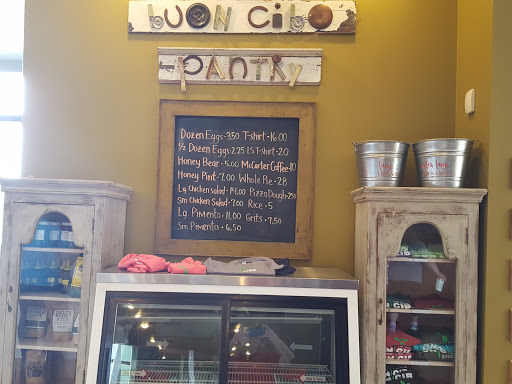 buon cibo
PANTRY
Dozen Eggs-3.50 T-shirt-16.00
1/2 Dozen Eggs-2.25 LS T-shirt-20
Honey Bear-5.00 McCarter Coffee-10
Honey Pint-7.00 Whole Pie-28
Lg. Chicken salad-14.00 Pizza Dough-2.50
Sm Chicken Salad-7.00 Rice-5
Lg. Pimento-11.00 Grits-7.50
Sm Pimento-6.50